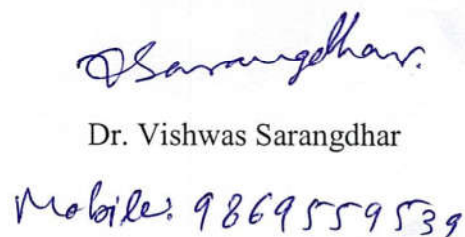 VSarangdhar.
Dr. Vishwas Sarangdhar
Mobile: 9869559539